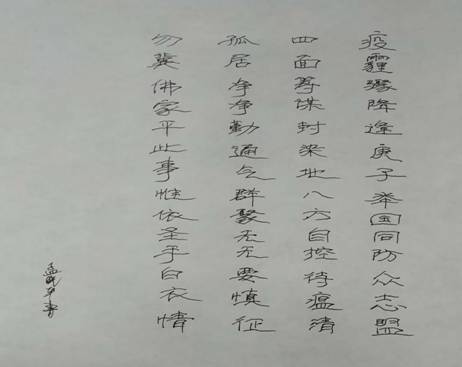 疫霾降逢庚子举国同防众志盟
四面筹谋封染地八方自控待瘟清
孤居净净勤通气群聚无无要慎征
勿冀佛家平此事惟依圣手白衣情
孟书